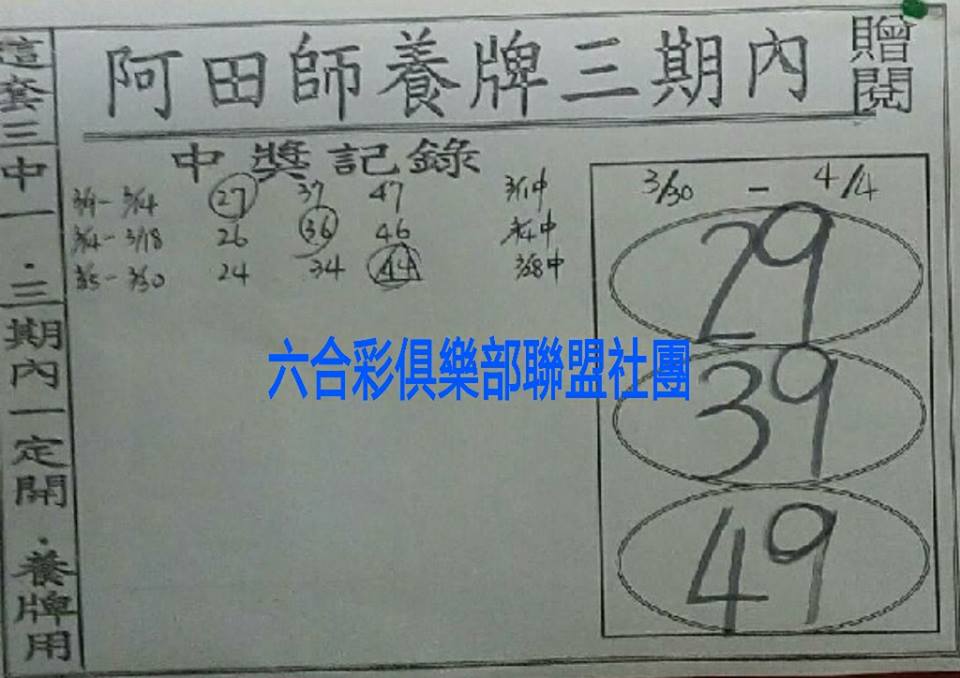 阿田師養牌三期內
贈閱
這套三中一．三期內一定開．養牌用
中獎記錄
3/14 27 37 47
3/14 - 3/18 26 36 46 3/14中
3/30 24 34 44 3/28中
3/30 - 4/4
29
39
49
六合彩俱樂部聯盟社團